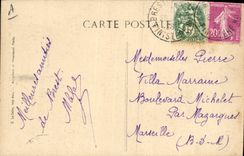 CARTE POSTALE
Meilleures amitiés
de Brest
Mesdemoiselles Pierre
Villa Marraine
Boulevard Michelet
par Mazargues
Marseille (B-d-R)